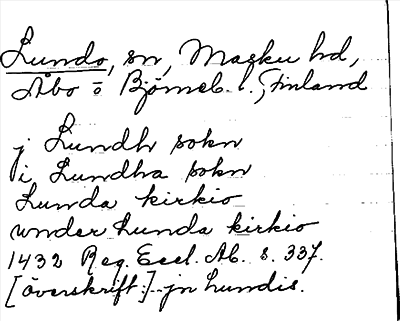 Lundo, sn, Masku hd,
Åbo o Björneb. l., Finland
j Lundh sokn
i Lundha sokn
Lunda kirkio
under Lunda kirkio
1432 Reg. Eccl. Ab. s. 337.
[överskrift:] jn Lundis.